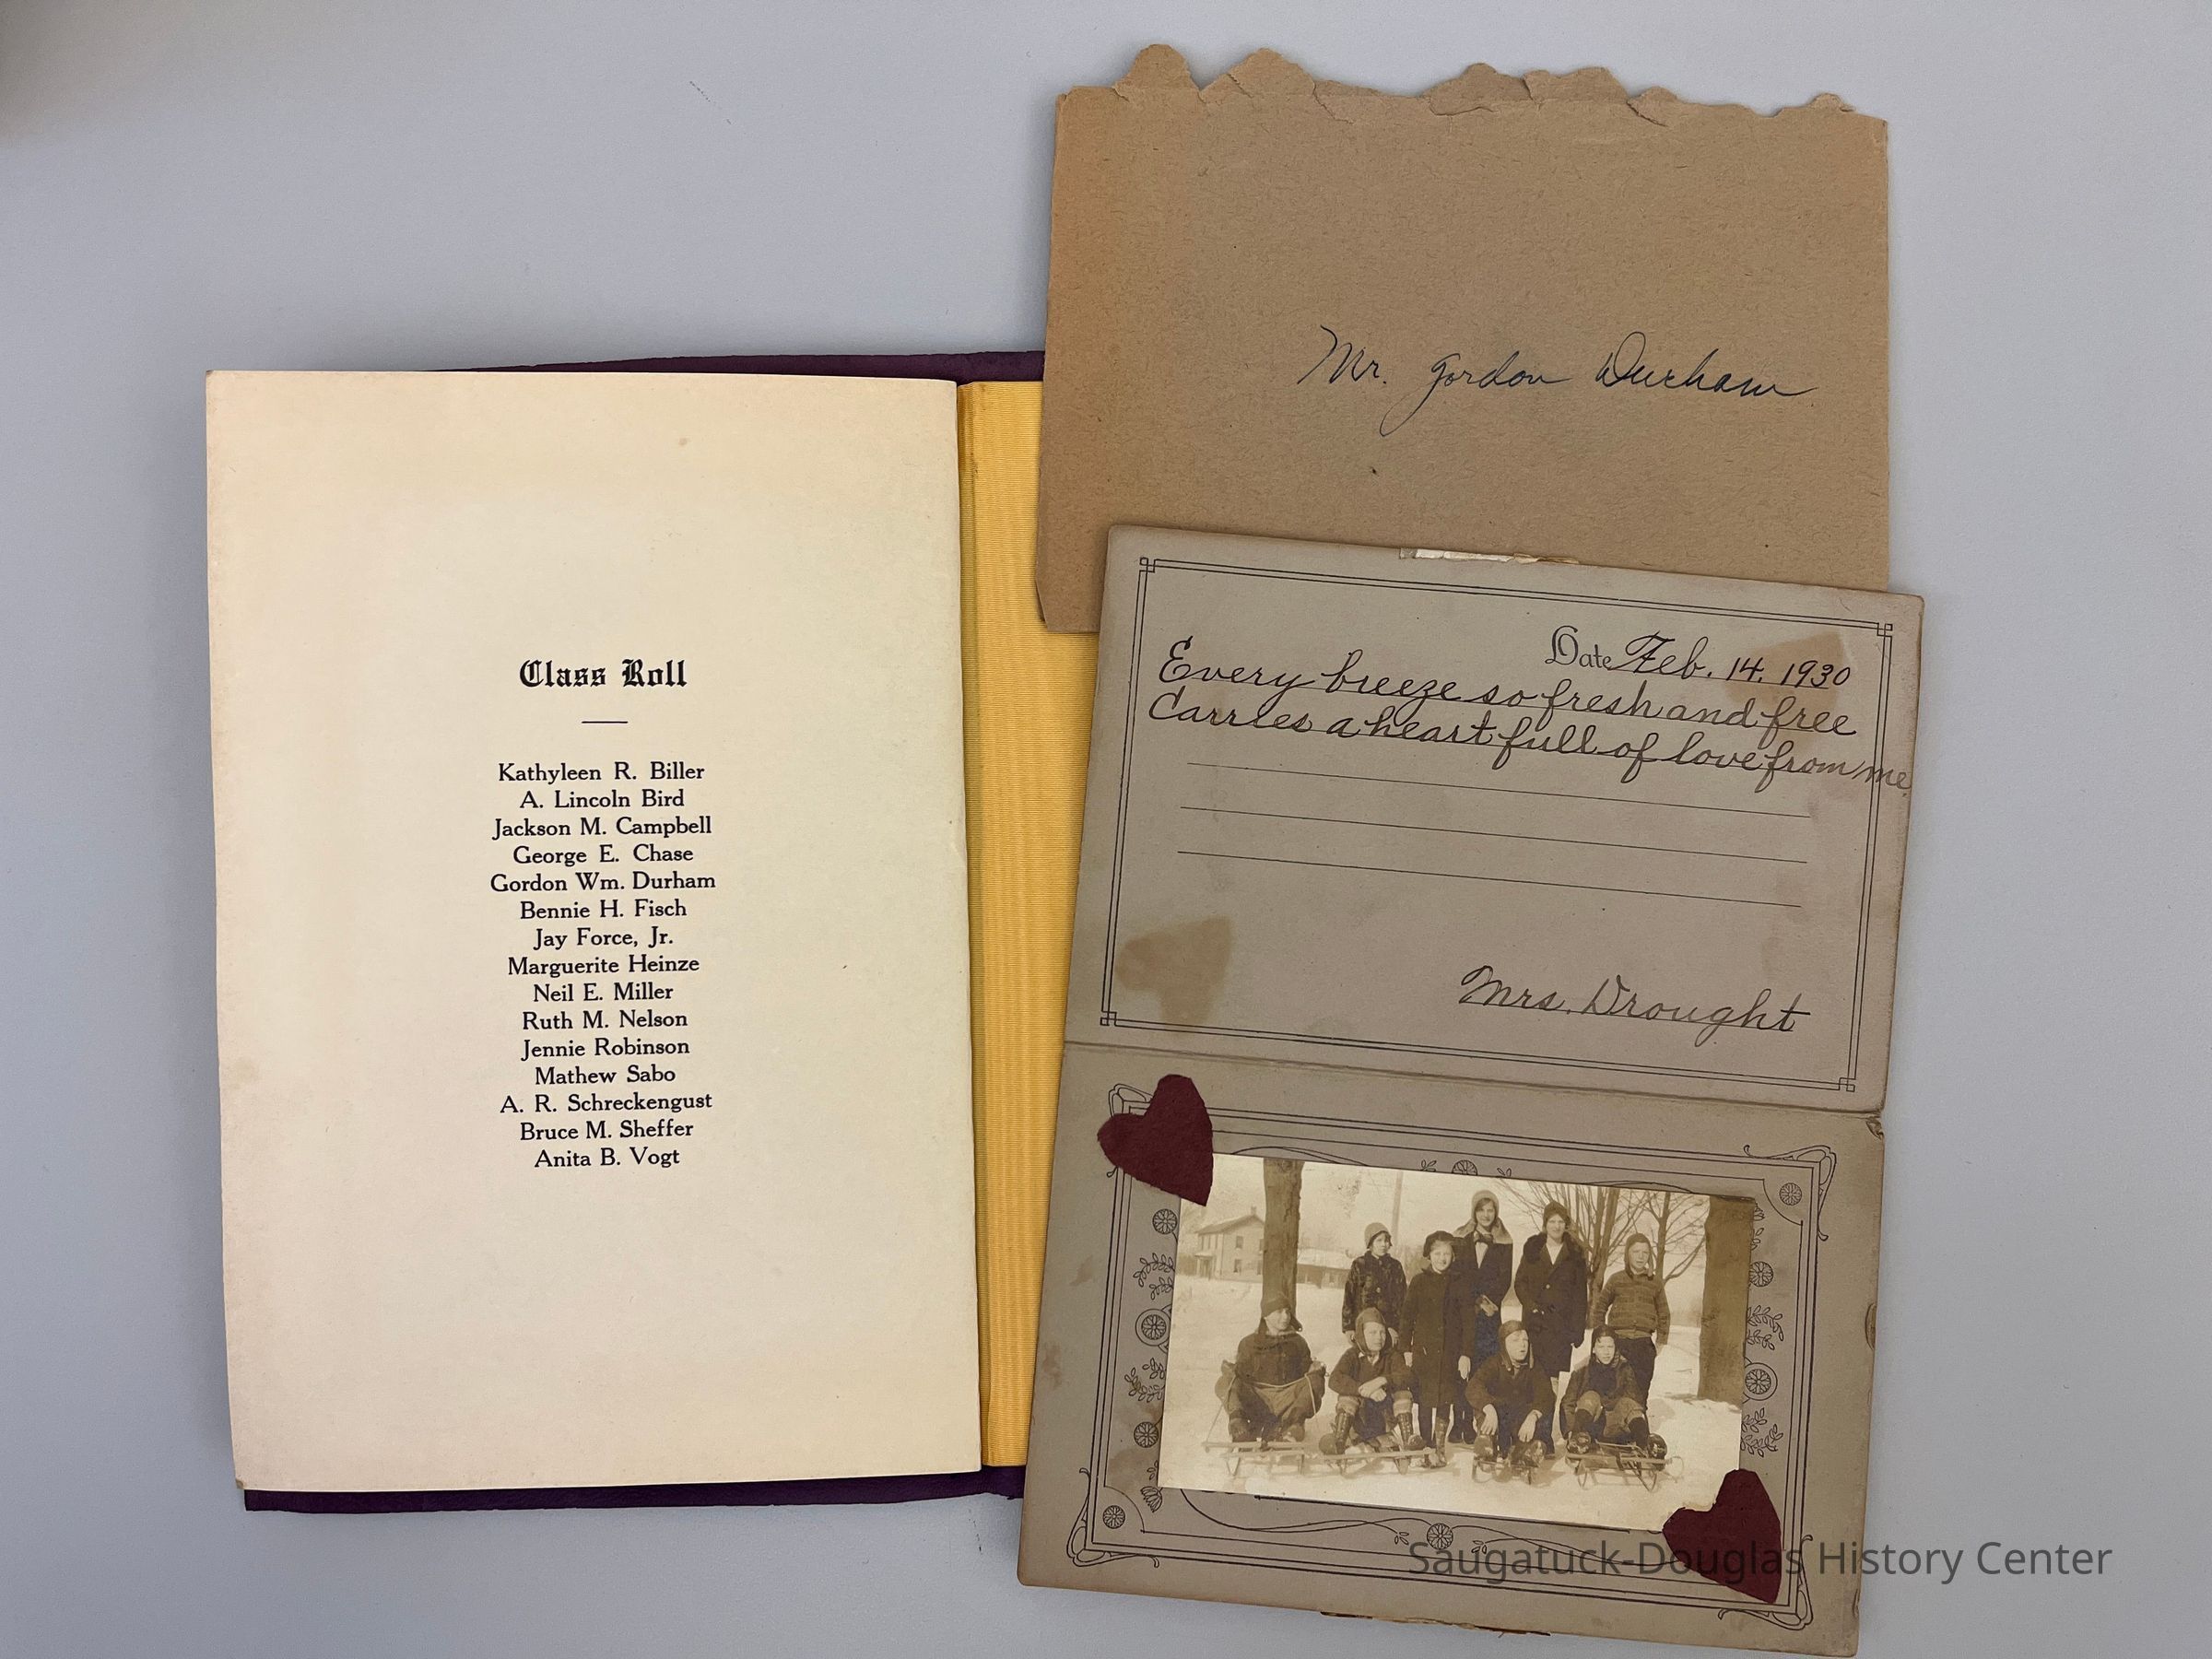 Class Roll
Kathyleen R. Biller
A. Lincoln Bird
Jackson M. Campbell
George E. Chase
Gordon Wm. Durham
Bennie H. Fisch
Jay Force, Jr.
Marguerite Heinze
Neil E. Miller
Ruth M. Nelson
Jennie Robinson
Mathew Sabo
A. R. Schreckengust
Bruce M. Sheffer
Anita B. Vogt
Mr. Gordon Durham
Date Feb. 14, 1930
Every breeze so fresh and free
Carries a heart full of love from me.
Mrs. Drought
Saugatuck-Douglas History Center